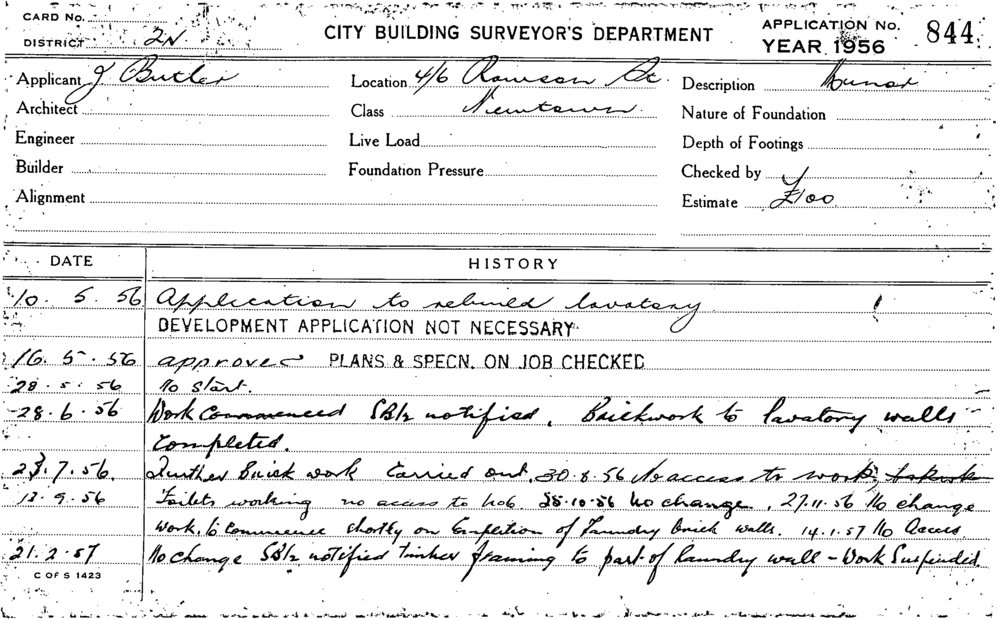 CARD No.
DISTRICT 2N
CITY BUILDING SURVEYOR'S DEPARTMENT
APPLICATION No. 844
YEAR 1956
Applicant J Butler
Location 4/6 Rawson St
Description Minor
Architect
Class Newtown
Nature of Foundation
Engineer
Live Load
Depth of Footings
Builder
Foundation Pressure
Checked by
Alignment
Estimate £100
DATE HISTORY
10. 5. 56 Application to rebuild lavatory
DEVELOPMENT APPLICATION NOT NECESSARY
16. 5. 56 approved PLANS & SPECN. ON JOB CHECKED
28. 5. 56 No start.
28. 6. 56 Work Commenced notified. Brickwork to lavatory walls
Completed.
23. 7. 56. Further Brick work Carried out. 30.8.56 No access to work
12. 9. 56 Toilets working no access to 25.10.56 No change. 27.11.56 No change
work to commence shortly on Completion of laundry brick walls. 14.1.57 No access
21. 2. 57 No change notified timber framing to part of laundry wall - Work Suspended.
C OF S 1423